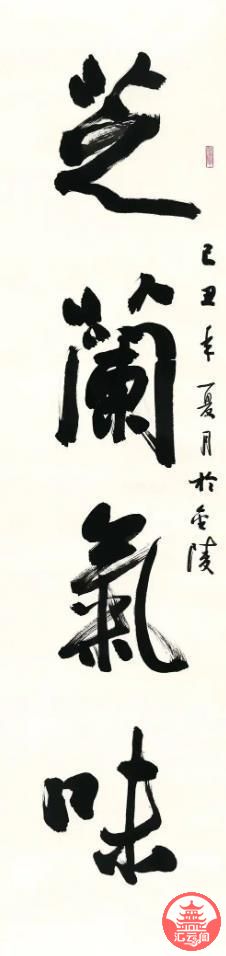 芝蘭氣味
己丑年夏月於金陵
汇云阁